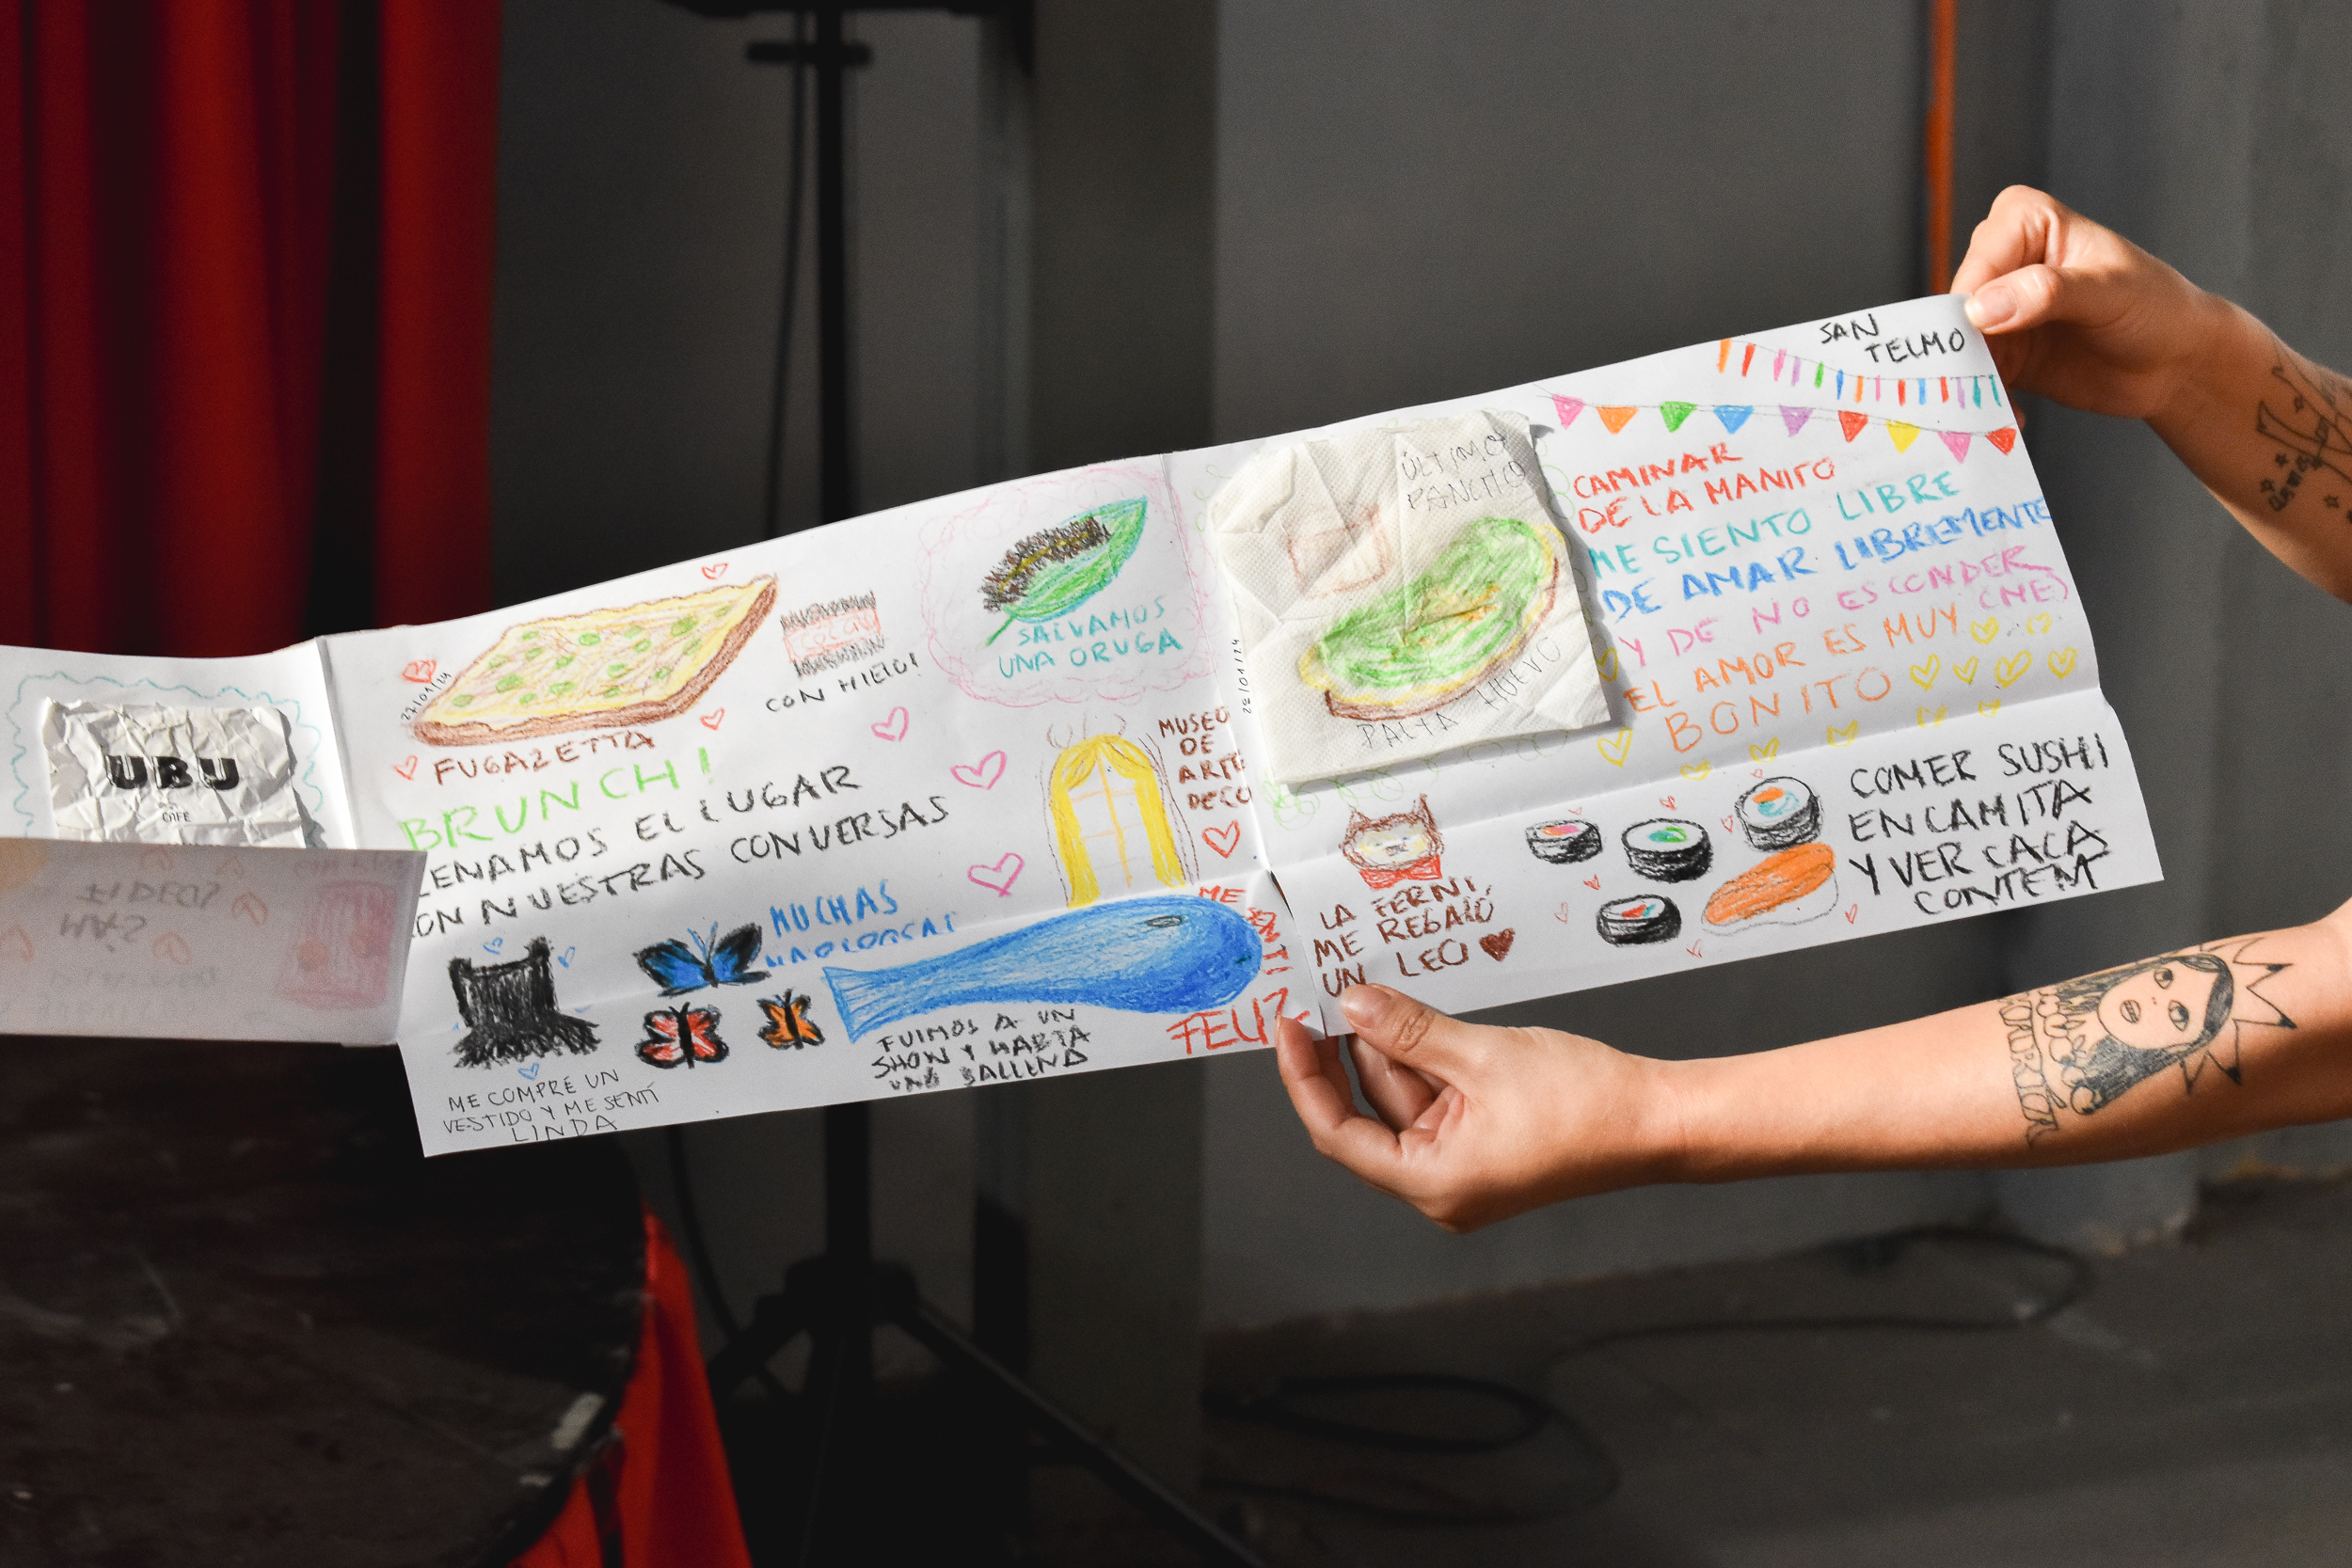 UBU
CAFE
27/01/24
FUGAZETTA
COCA
CON HIELO!
SALVAMOS
UNA ORUGA
BRUNCH!
LENAMOS EL LUGAR
ON NUESTRAS CONVERSAS
MUSEO
DE
ARTE
DECO
MUCHAS
ME COMPRÉ UN
VESTIDO Y ME SENTÍ
LINDA
FUIMOS A UN
SHOW Y HABÍA
UNA BALLENA
ME
FELIZ
28/01/24
ÚLTIMO
PANCITO
PALTA HUEVO
SAN
TELMO
CAMINAR
DE LA MANITO
ME SIENTO LIBRE
DE AMAR LIBREMENTE
Y DE NO ESCONDER
(ME)
EL AMOR ES MUY
BONITO
LA FERNI,
ME REGALÓ
UN LEO
COMER SUSHI
EN CAMITA
Y VER CACA
CONTENT